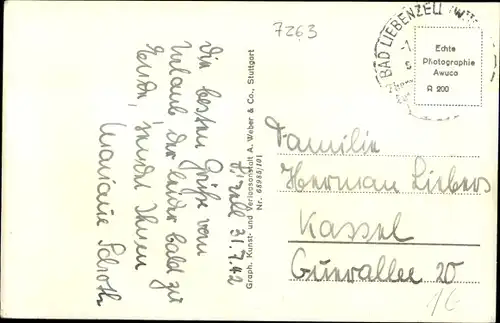 7263
BAD LIEBENZELL
Echte
Photographie
Awuco
R 200
H'zell 31.7.42
Die besten Grüße vom
Urlaub der leider bald zu
Ende, sendet Ihnen
Marianne Schroth
Graph. Kunst- und Verlagsanstalt A. Weber & Co., Stuttgart
Nr. 68988/101
Familie
Herman Liebers
Kassel
20
16